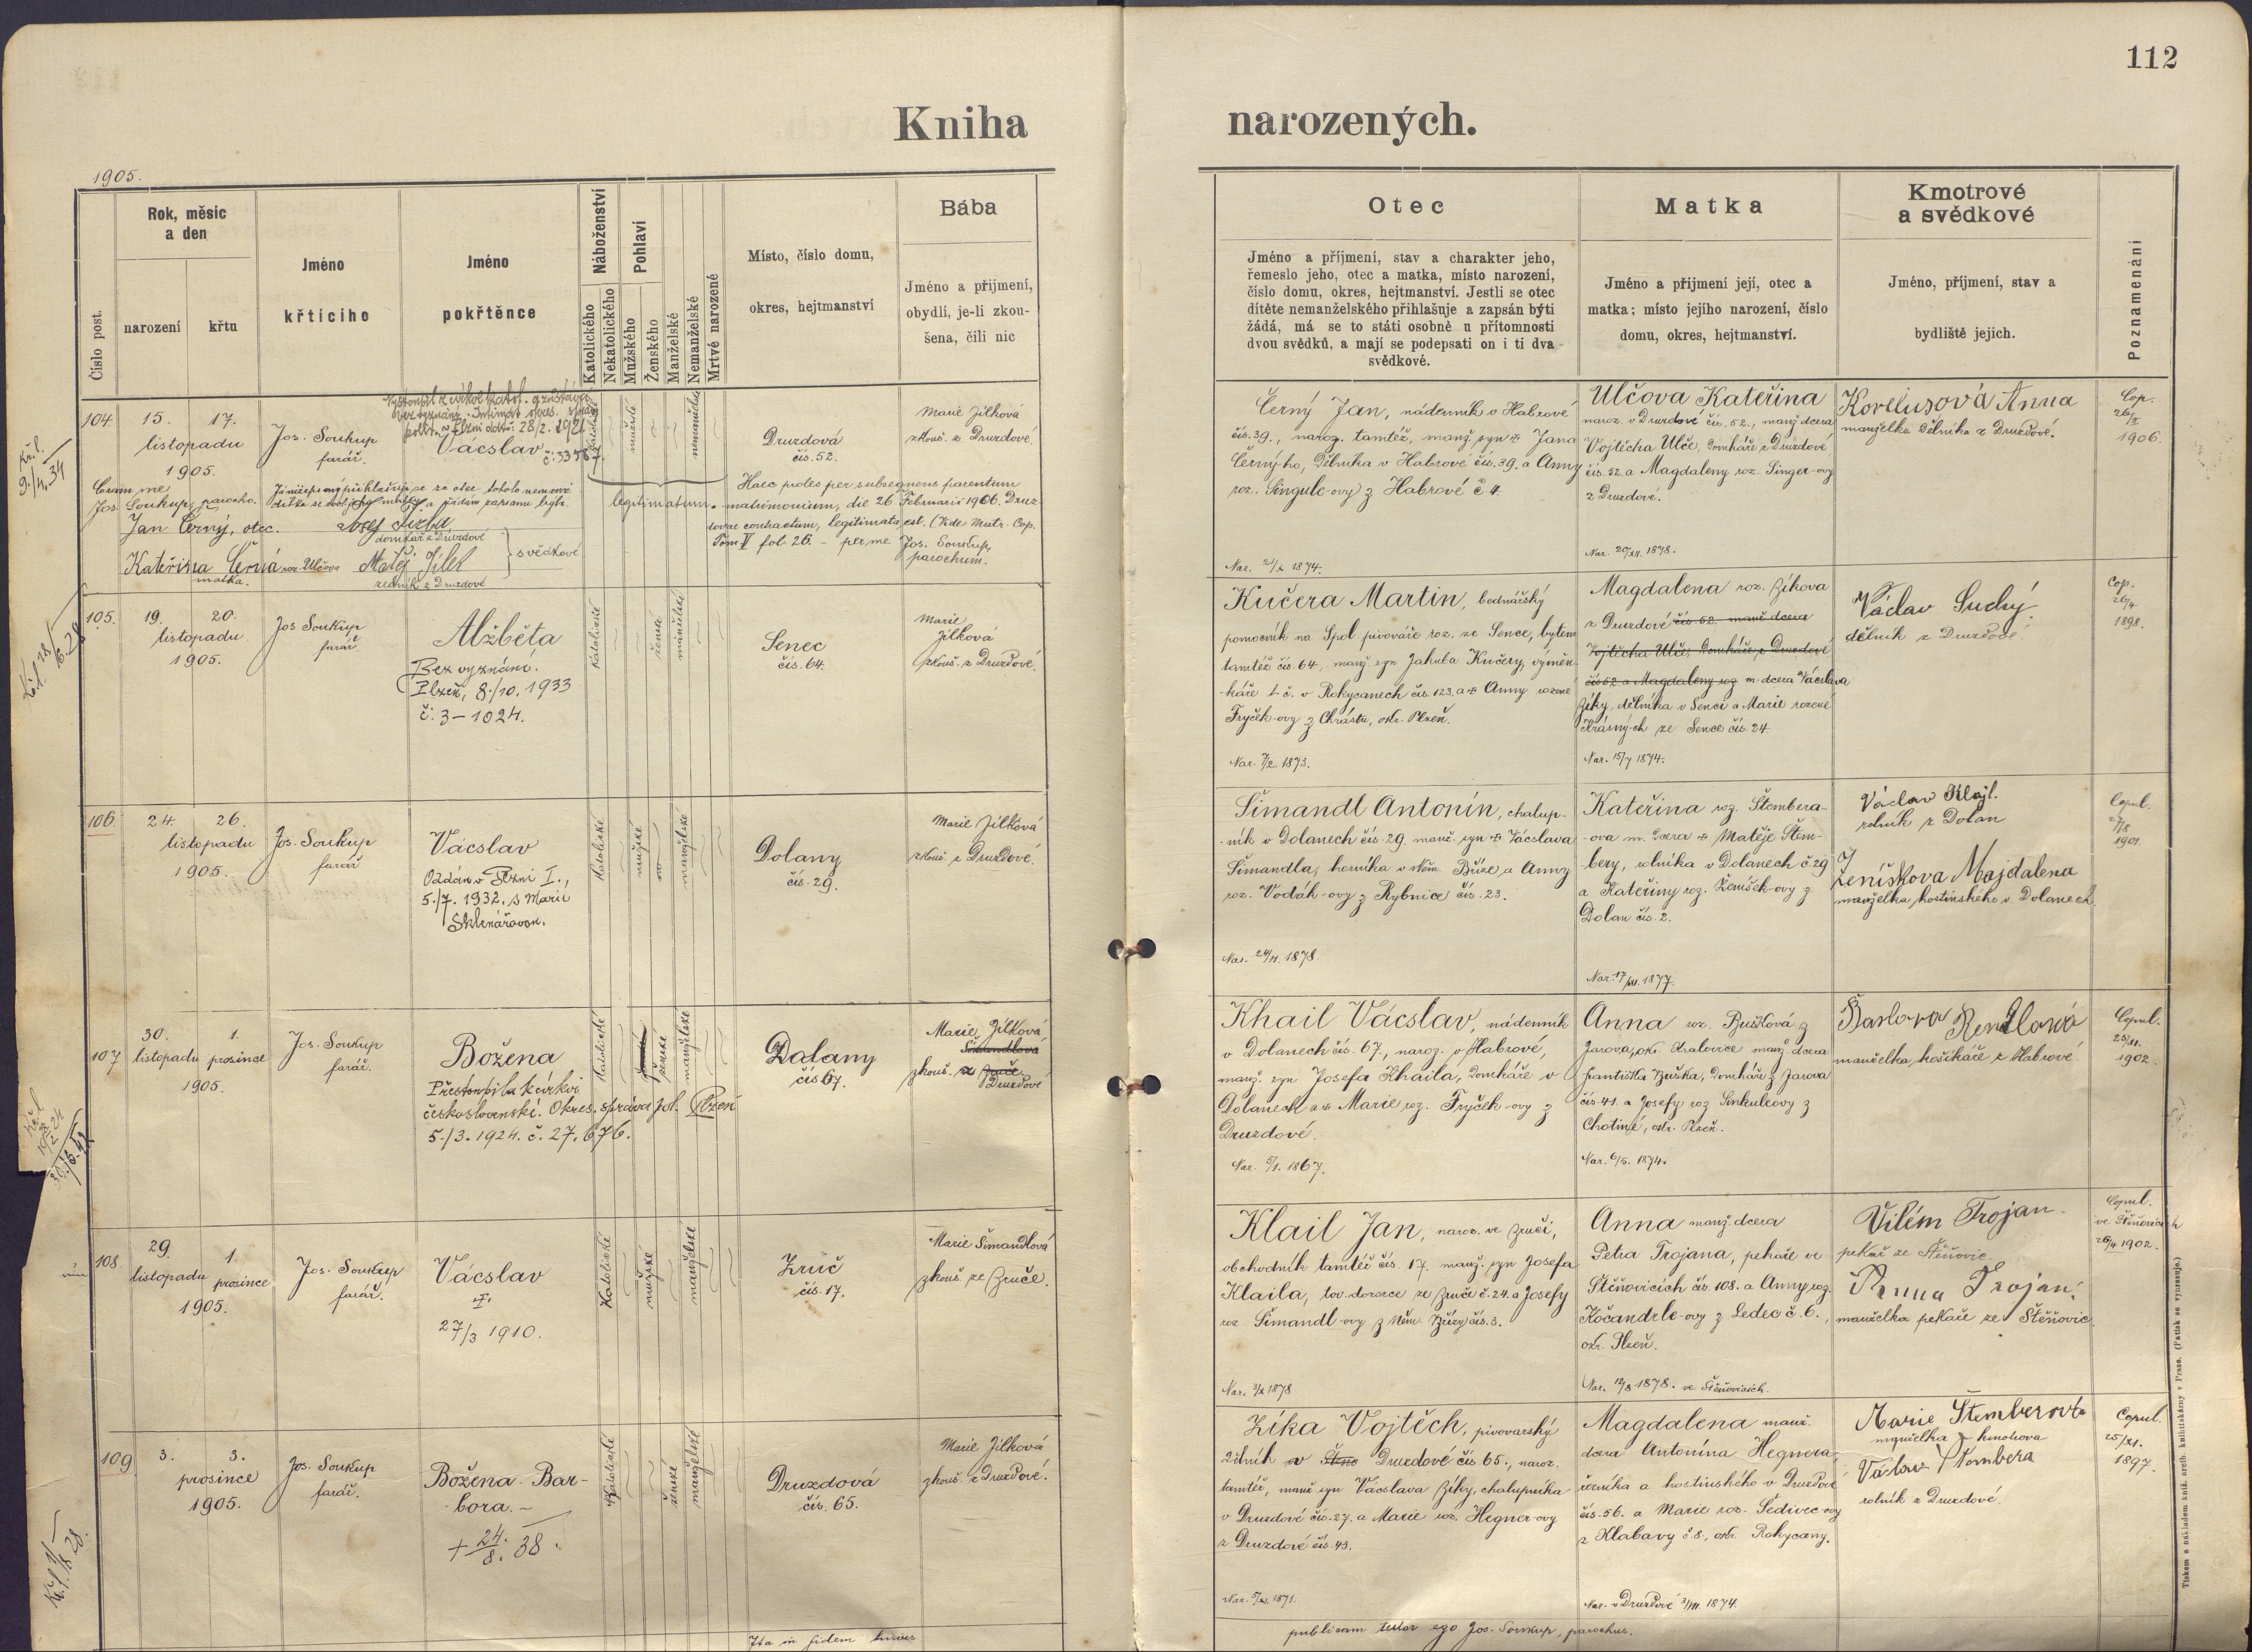 112
Kniha narozených.
1905.
Číslo post.
Rok, měsíc
a den
narození
křtu
Jméno
křtícího
Jméno
pokřtěnce
Náboženství
Katolického
Nekatolického
Pohlaví
Mužského
Ženského
Manželské
Nemanželské
Mrtvé narozené
Místo, číslo domu,
okres, hejtmanství
Bába
Jméno a přijmení,
obydlí, je-li zkou-
šena, čili nic
Otec
Jméno a příjmení, stav a charakter jeho,
řemeslo jeho, otec a matka, místo narození,
číslo domu, okres, hejtmanství. Jestli se otec
dítěte nemanželského přihlašuje a zapsán býti
žádá, má se to státi osobně u přítomnosti
dvou svědků, a mají se podepsati on i ti dva
svědkové.
Matka
Jméno a přijmení její, otec a
matka; místo jejího narození, číslo
domu, okres, hejtmanství.
Kmotrové
a svědkové
Jméno, příjmení, stav a
bydliště jejich.
Poznamenání
104.
15. 17.
listopadu
1905.
Jos. Soukup
farář.
Vystoupil z církve katol.
28/2. 1921
č: 33587.
Vácslav
katolické
mužské
nemanželské
Druzdová
čís. 52.
Marie Jílková
zkouš. z Druzdové.
Coram me
Jos. Soukup, parocho.
Jan Černý, otec.
Kateřina Černá roz. Ulčova
matka.
domkář z Druzdové
Matěj Jílek
zedník z Druzdové
svědkové
legitimatum.
Haec proles per subsequens parentum
matrimonium, die 26. Februarii 1906. Druz-
dovae contractum, legitimata est. (Vide Matr. Cop.
Tom V fol. 26. - per me Jos. Soukup,
parochum.
Černý Jan, nádenník v Habrové
čís. 39., naroz. tamtéž, manž. syn † Jana
Černýho, dělníka v Habrové čís. 39. a Anny
roz. Singule-ovy z Habrové č 4.
Nar. 21/X 1874.
Ulčova Kateřina
naroz. v Druzdové čís. 52., manž dcera
Vojtěcha Ulče, domkáře z Druzdové
čís. 52. a Magdaleny roz. Singer-ovy
z Druzdové.
Nar. 20/XII. 1878.
Korelusová Anna
manželka dělníka z Druzdové.
Cop.
26/II
1906.
105.
19. 20.
listopadu.
1905.
Jos Soukup
farář.
Alžběta
Bez vyznání.
Plzeň, 8./10. 1933
č. 3-1024.
katolické
ženské
manželské
Senec
čís. 64.
Marie
Jílková
zkouš. z Druzdové.
Kučera Martin, bednářský
pomocník na Spol. pivováře roz. ze Sence, bytem
tamtéž čís. 64., manž. syn Jakuba Kučery, výměn-
káře t. č. v Rokycanech čís. 123. a † Anny rozené
Fryček-ovy z Chrástu, okr. Plzeň.
Nar. 7/2. 1873.
Magdalena roz. Zíkova
z Druzdové čís. 52. manž dcera
Vojtěcha Ulče, domkáře z Druzdové
čís 52 a Magdaleny roz m. dcera Vácslava
Zíky, dělníka v Senci a Marie rozené
Krásných ze Sence čís. 24.
Nar. 15/7 1874.
Václav Suchý
dělník z Druzdové.
Cop.
26/4
1898.
106.
24. 26.
listopadu
1905.
Jos. Soukup
farář
Vácslav
Oddán v Plzni I.,
5./7. 1932, s Marií
Sklenářovou.
katolické
mužské
manželské
Dolany
čís. 29.
Marie Jílková
zkouš. z Druzdové.
Šimandl Antonín, chalup-
-ník v Dolanech čís. 29. manž. syn † Vácslava
Šimandla, horníka v Něm. Bříze, a Anny
roz. Vodák-ovy z Rybnice čís. 23.
Nar. 24/11. 1878.
Kateřina roz. Štembera-
-ova m. dcera † Matěje Štem-
bery, rolníka v Dolanech č. 29
a Kateřiny roz. Ženíšek-ovy z
Dolan čís. 2.
Nar. 17/XII. 1877.
Václav Klajl.
rolník z Dolan
Ženíškova Majdalena
manželka hostinského v Dolanech.
Copul.
27/8
1901.
107
30. 1.
listopadu prosince
1905.
Jos. Soukup
farář.
Božena
Přestoupila k církvi
československé. Okres. správa pol. Plzeň
5./3. 1924. č. 27.676.
katolické
ženské
manželské
Dolany
čís 67.
Marie Jílková
Šimandlová
zkouš. z Zruče.
Druzdové
Khail Vácslav, nádenník
v Dolanech čís. 67., naroz. v Habrové,
manž. syn Josefa Khaila, domkáře v
Dolanech a † Marie roz. Fryček-ovy z
Druzdové.
Nar. 5/1. 1867.
Anna roz. Bušková z
Jarova, okr. Kralovice manž. dcera
Františka Buška, domkáře z Jarova
čís. 41. a Josefy roz Sinkuleovy z
Chotiné, okr. Plzeň.
Nar. 6/5. 1874.
Barbora Rendlová
manželka košíkáře z Habrové.
Copul.
25/XI.
1902.
108.
29. 1.
listopadu prosince
1905.
Jos. Soukup
farář.
Vácslav
†
27/3 1910.
Katolické
mužské
manželské
Zruč
čís. 17.
Marie Šimandlová
zkouš. ze Zruče.
Klail Jan, naroz. ve Zruči,
obchodník tamtéž čís. 17. manž. syn Josefa
Klaila, tov. dozorce ze Zruče č. 24. a Josefy
roz. Šimandl-ovy z Něm. Břízy čís. 3.
Nar. 3/X 1878
Anna manž. dcera
Petra Trojana, pekaře ve
Štěňovicích čís. 108. a Anny roz.
Kočandrle-ovy z Ledec č. 6.,
okr. Plzeň.
Nar. 12/8 1878. ve Štěňovicích.
Vilém Trojan
pekař ze Štěňovic.
Anna Trojan,
manželka pekaře ze Štěňovic
Copul.
ve Štěňovicích
26/4 1902.
109
3. 3.
prosince
1905.
Jos. Soukup
farář.
Božena-Bar-
-bora.-
+ 24./8. 38.
Katolické
ženské
manželské
Druzdová
čís. 65.
Marie Jílková
zkouš. z Druzdové.
Zíka Vojtěch, pivovarský
dělník v Druzdové čís 65., naroz.
tamtéž, manž syn Vácslava Zíky, chalupníka
v Druzdové čís. 27. a Marie roz. Hegner-ovy
z Druzdové čís. 43.
Nar. 5/XI. 1871.
Magdalena manž.
dcera Antonína Hegnera,
řezníka a hostinského v Druzdové
čís. 56. a Marie roz. Šedivec-ovy
z Klabavy č 8., okr. Rokycany.
Nar. v Druzdové 3/III. 1874.
Marie Štemberová
manželka kmotrova
Václav Štembera
rolník z Druzdové.
Copul.
25/XI.
1897.
Ita in fidem hujus
publicam testor ego Jos. Soukup, parochus.
Tiskem a nákladem kníž. arcib. knihtiskárny v Praze. (Patisk se vyhrazuje.)